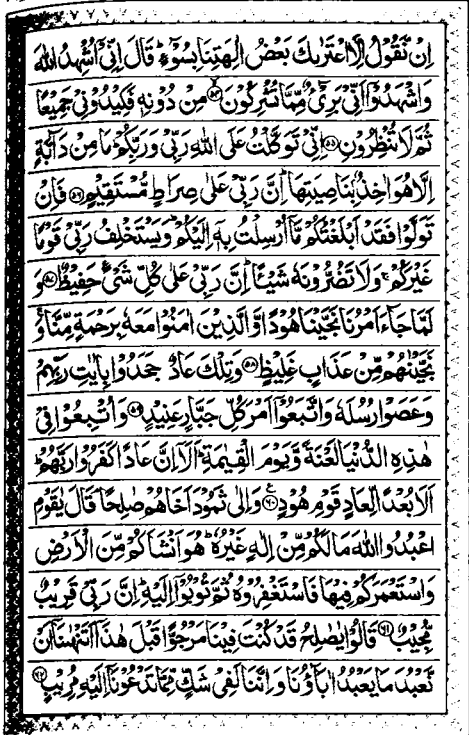 اِنْ نَّقُوْلُ اِلَّا اعْتَرٰىكَ بَعْضُ اٰلِهَتِنَا بِسُوْٓءٍ ؕ قَالَ اِنِّیْۤ اُشْهِدُ اللّٰهَ
وَ اشْهَدُوْۤا اَنِّیْ بَرِیْٓءٌ مِّمَّا تُشْرِكُوْنَ ۙ۝۵۴ مِنْ دُوْنِهٖ فَكِیْدُوْنِیْ جَمِیْعًا
ثُمَّ لَا تُنْظِرُوْنِ ۝۵۵ اِنِّیْ تَوَكَّلْتُ عَلَی اللّٰهِ رَبِّیْ وَ رَبِّكُمْ ؕ مَا مِنْ دَآبَّةٍ
اِلَّا هُوَ اٰخِذٌۢ بِنَاصِیَتِهَا ؕ اِنَّ رَبِّیْ عَلٰی صِرَاطٍ مُّسْتَقِیْمٍ ۝۵۶ فَاِنْ
تَوَلَّوْا فَقَدْ اَبْلَغْتُكُمْ مَّاۤ اُرْسِلْتُ بِهٖۤ اِلَیْكُمْ ؕ وَ یَسْتَخْلِفُ رَبِّیْ قَوْمًا
غَیْرَكُمْ ۚ وَ لَا تَضُرُّوْنَهٗ شَیْـًٔا ؕ اِنَّ رَبِّیْ عَلٰی كُلِّ شَیْءٍ حَفِیْظٌ ۝۵۷ وَ
لَمَّا جَآءَ اَمْرُنَا نَجَّیْنَا هُوْدًا وَّ الَّذِیْنَ اٰمَنُوْا مَعَهٗ بِرَحْمَةٍ مِّنَّا ۚ وَ
نَجَّیْنٰهُمْ مِّنْ عَذَابٍ غَلِیْظٍ ۝۵۸ وَ تِلْكَ عَادٌ ۙ جَحَدُوْا بِاٰیٰتِ رَبِّهِمْ
وَ عَصَوْا رُسُلَهٗ وَ اتَّبَعُوْۤا اَمْرَ كُلِّ جَبَّارٍ عَنِیْدٍ ۝۵۹ وَ اُتْبِعُوْا فِیْ
هٰذِهِ الدُّنْیَا لَعْنَةً وَّ یَوْمَ الْقِیٰمَةِ ؕ اَلَاۤ اِنَّ عَادًا كَفَرُوْا رَبَّهُمْ ؕ
اَلَا بُعْدًا لِّعَادٍ قَوْمِ هُوْدٍ ۝۶۰ وَ اِلٰی ثَمُوْدَ اَخَاهُمْ صٰلِحًا ۘ قَالَ یٰقَوْمِ
اعْبُدُوا اللّٰهَ مَا لَكُمْ مِّنْ اِلٰهٍ غَیْرُهٗ ؕ هُوَ اَنْشَاَكُمْ مِّنَ الْاَرْضِ
وَ اسْتَعْمَرَكُمْ فِیْهَا فَاسْتَغْفِرُوْهُ ثُمَّ تُوْبُوْۤا اِلَیْهِ ؕ اِنَّ رَبِّیْ قَرِیْبٌ
مُّجِیْبٌ ۝۶۱ قَالُوْا یٰصٰلِحُ قَدْ كُنْتَ فِیْنَا مَرْجُوًّا قَبْلَ هٰذَاۤ اَتَنْهٰىنَاۤ اَنْ
نَّعْبُدَ مَا یَعْبُدُ اٰبَآؤُنَا وَ اِنَّنَا لَفِیْ شَكٍّ مِّمَّا تَدْعُوْنَاۤ اِلَیْهِ مُرِیْبٍ ۝۶۲